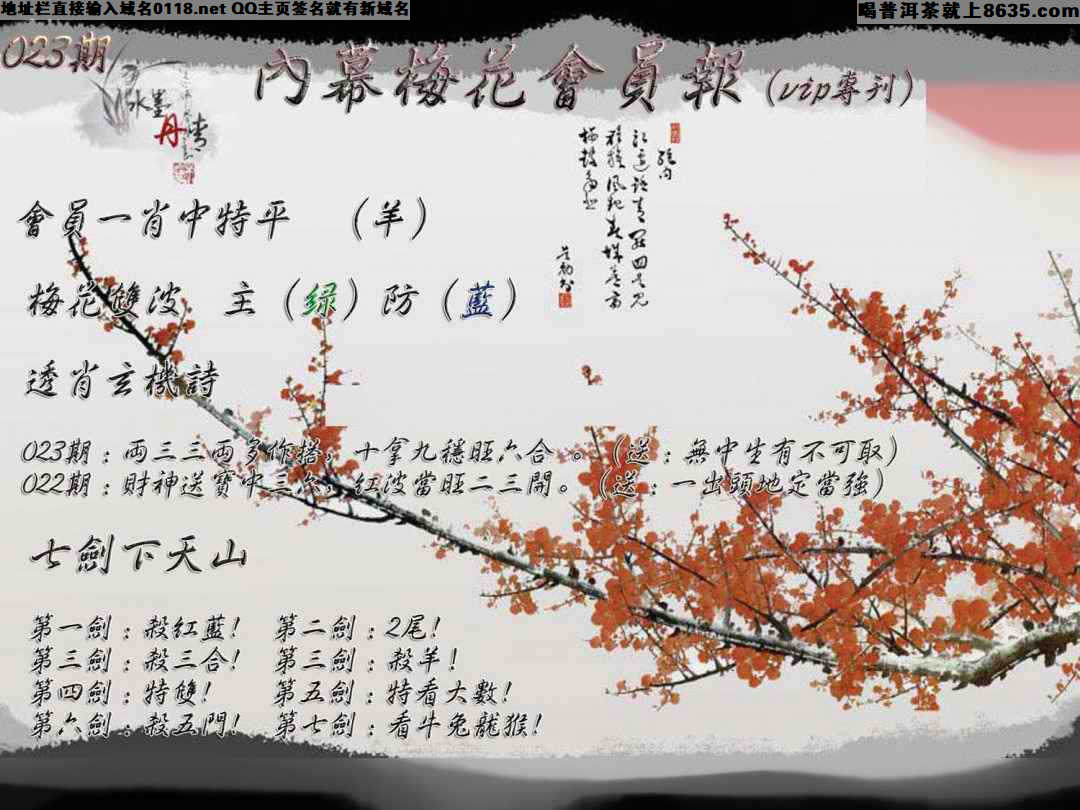 地址栏直接输入域名0118.net QQ主页签名就有新域名
喝普洱茶就上8635.com
023期
內幕梅花會員報(vip專刊)
水墨丹情
會員一肖中特平 (羊)
梅花雙波 主(绿)防(藍)
透肖玄機詩
023期:両三三両多作搭,十拿九穩旺六合。(送:無中生有不可取)
022期:財神送寶中三六,红波當旺二三開。(送:一出頭地定當強)
七劍下天山
第一劍:殺紅藍! 第二劍:2尾!
第三劍:殺三合! 第三劍:殺羊!
第四劍:特雙! 第五劍:特看大數!
第六劍:殺五門! 第七劍:看牛兔龍猴!